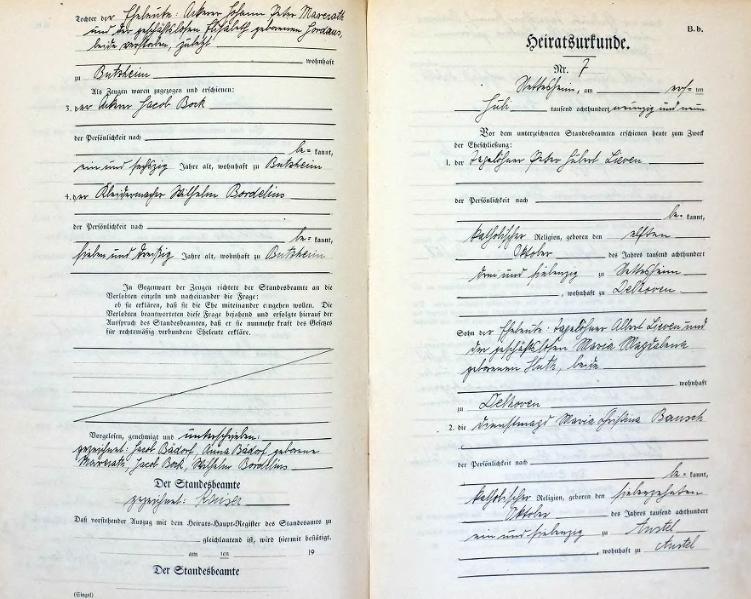 Tochter der Eheleute: Ackerer Johann Peter Maverath
und der geschäftslosen Elisabeth geborenen Gordaus,
beide verstorben, zuletzt
wohnhaft
zu Butzheim
Als Zeugen waren zugezogen und erschienen:
3. der Ackerer Jacob Bock
der Persönlichkeit nach
be= kannt,
ein und sechzig Jahre alt, wohnhaft zu Butzheim
4. der Kleidermacher Wilhelm Bordelius
der Persönlichkeit nach
be= kannt,
sieben und dreißig Jahre alt, wohnhaft zu Butzheim
In Gegenwart der Zeugen richtete der Standesbeamte an die
Verlobten einzeln und nacheinander die Frage:
ob sie erklären, daß sie die Ehe miteinander eingehen wollen. Die
Verlobten beantworteten diese Frage bejahend und erfolgte hierauf der
Ausspruch des Standesbeamten, daß er sie nunmehr kraft des Gesetzes
für rechtmäßig verbundene Eheleute erkläre.
Vorgelesen, genehmigt und unterschrieben:
gezeichnet: Jacob Bädorf, Anna Bädorf geborene
Maverath, Jacob Bock, Wilhelm Bordelius
Der Standesbeamte
gezeichnet: Kaiser
Daß vorstehender Auszug mit dem Heirats-Haupt-Register des Standesamts zu
gleichlautend ist, wird hiermit bestätigt.
am ten 19
Der Standesbeamte
(Siegel)
B. b.
Heiratsurkunde.
Nr. 7
Nettesheim, am ersten
Juli tausend achthundert neunzig und neun
Vor dem unterzeichneten Standesbeamten erschienen heute zum Zweck
der Eheschließung:
1. der Tagelöhner Peter Hubert Lieven
der Persönlichkeit nach
be= kannt,
katholischer Religion, geboren den elften
Oktober des Jahres tausend achthundert
drei und siebenzig zu Nettesheim
, wohnhaft zu Delhoven
Sohn der Eheleute: Tagelöhner Albert Lieven und
der geschäftslosen Maria Magdalena
geborenen beide
wohnhaft
zu Delhoven
2. die Dienstmagd Maria Christina Bausch
der Persönlichkeit nach
be= kannt,
katholischer Religion, geboren den siebenzehnten
Oktober des Jahres tausend achthundert
ein und siebenzig zu Anstel
, wohnhaft zu Anstel